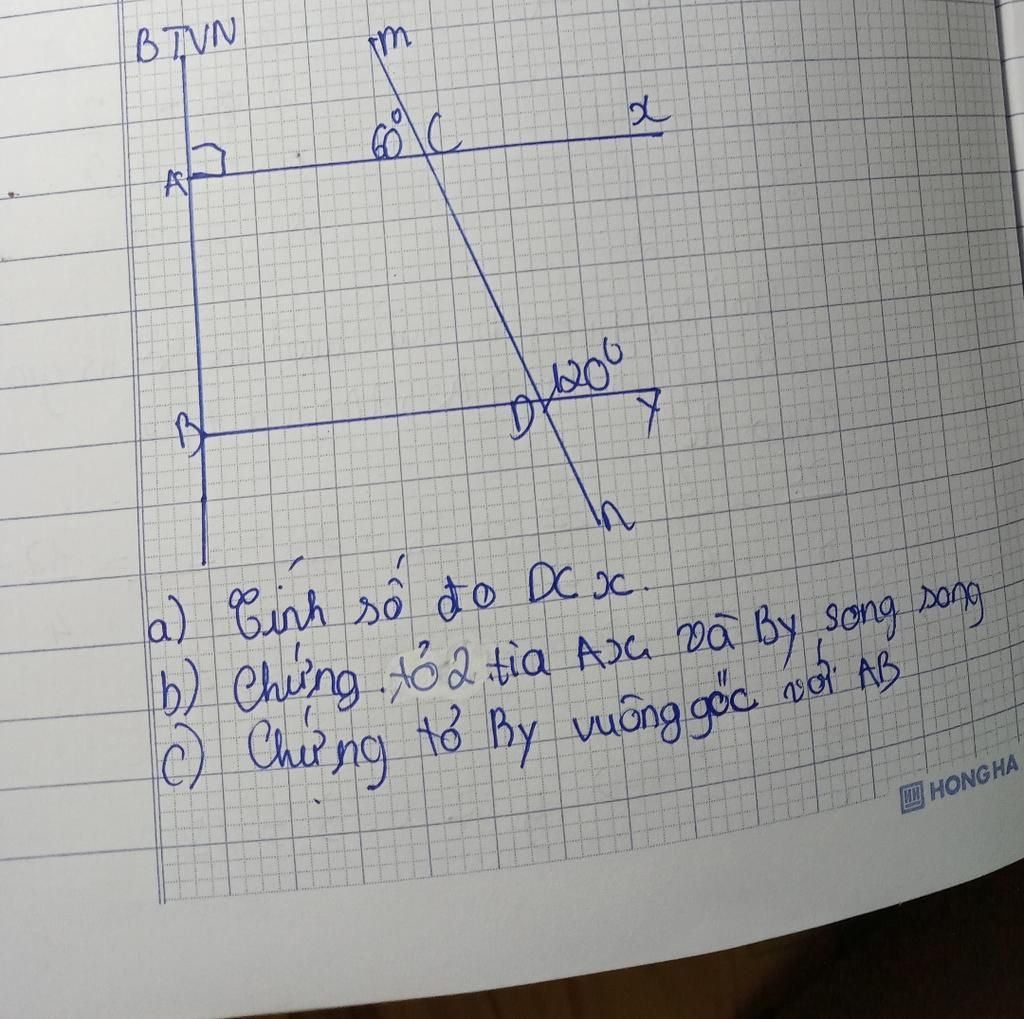 BTVN
m
60° C x
A
120°
B D y
n
a) Tính số đo DCx.
b) Chứng tỏ 2 tia Ax và By song song
c) Chứng tỏ By vuông góc với AB
HONG HA